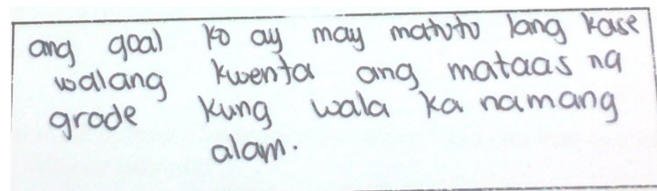 ang goal ko ay may matuto lang kase
walang kwenta ang mataas ng
grade kung wala ka namang
alam.